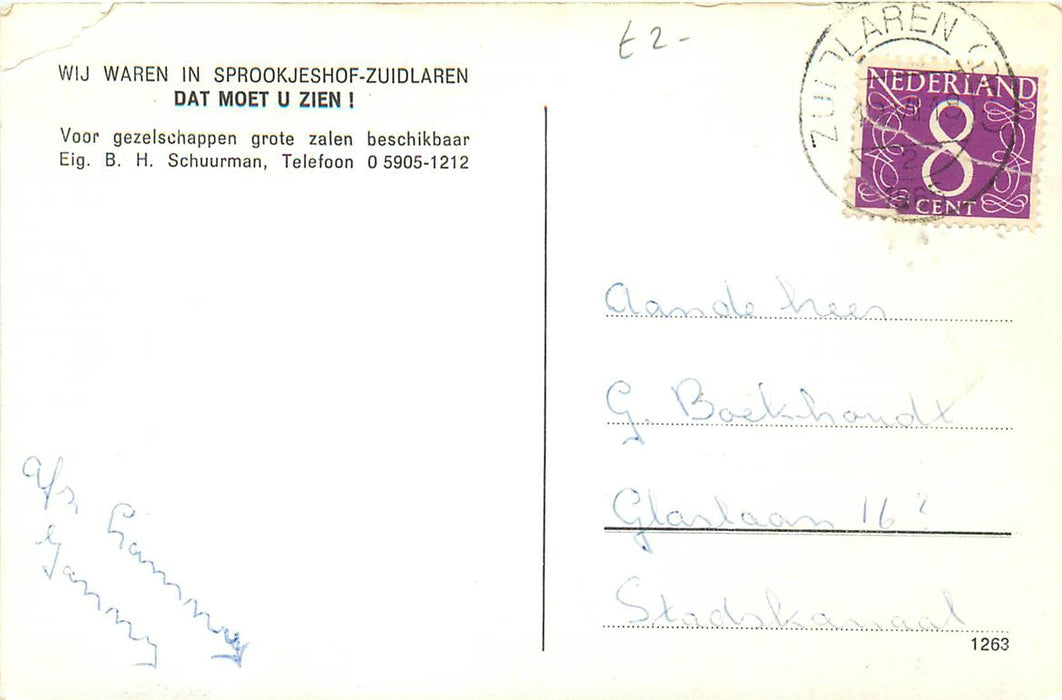 WIJ WAREN IN SPROOKJESHOF-ZUIDLAREN
DAT MOET U ZIEN !
Voor gezelschappen grote zalen beschikbaar
Eig. B. H. Schuurman, Telefoon 0 5905-1212
afz
t 2-
ZUIDLAREN
NEDERLAND
8
CENT
Aan de heer
G. Boekhoudt
Glaslaan 16?
Stadskanaal
1263